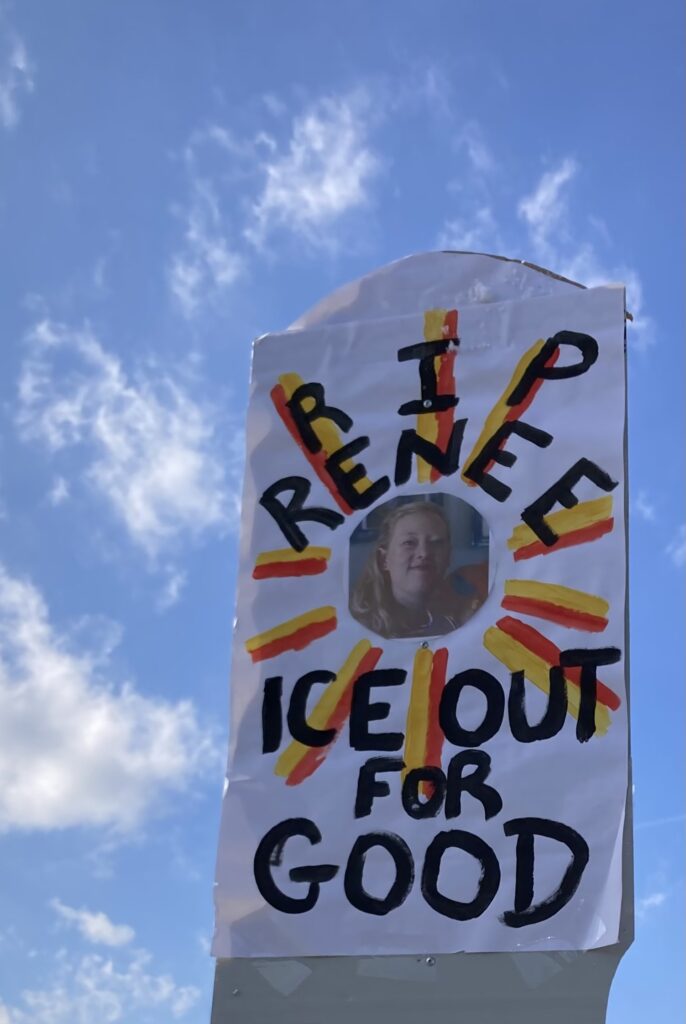 RIP
RENEE
ICE OUT
FOR
GOOD